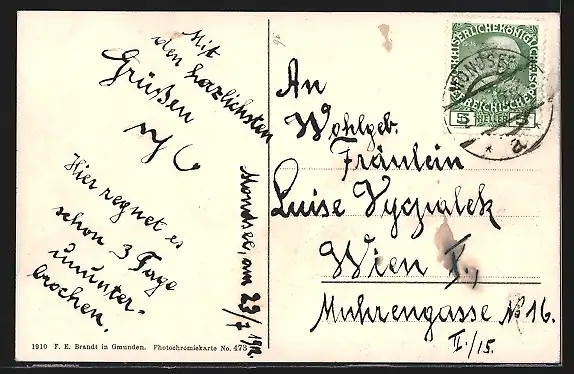 Mit
den herzlichsten
Grüßen
Hier regnet es
schon 3 Tage
ununter-
brochen.
Mondsee, am 23/7 1912
An
Wohlgeb.
Fräulein
Luise Vycpalek
Wien X.,
Muhrengasse No 16.
II./15.
KAISERLICHE KÖNIGL
MONDSEE
5 HELLER 5
* a *
1910 F. E. Brandt in Gmunden. Photochromiekarte No. 473